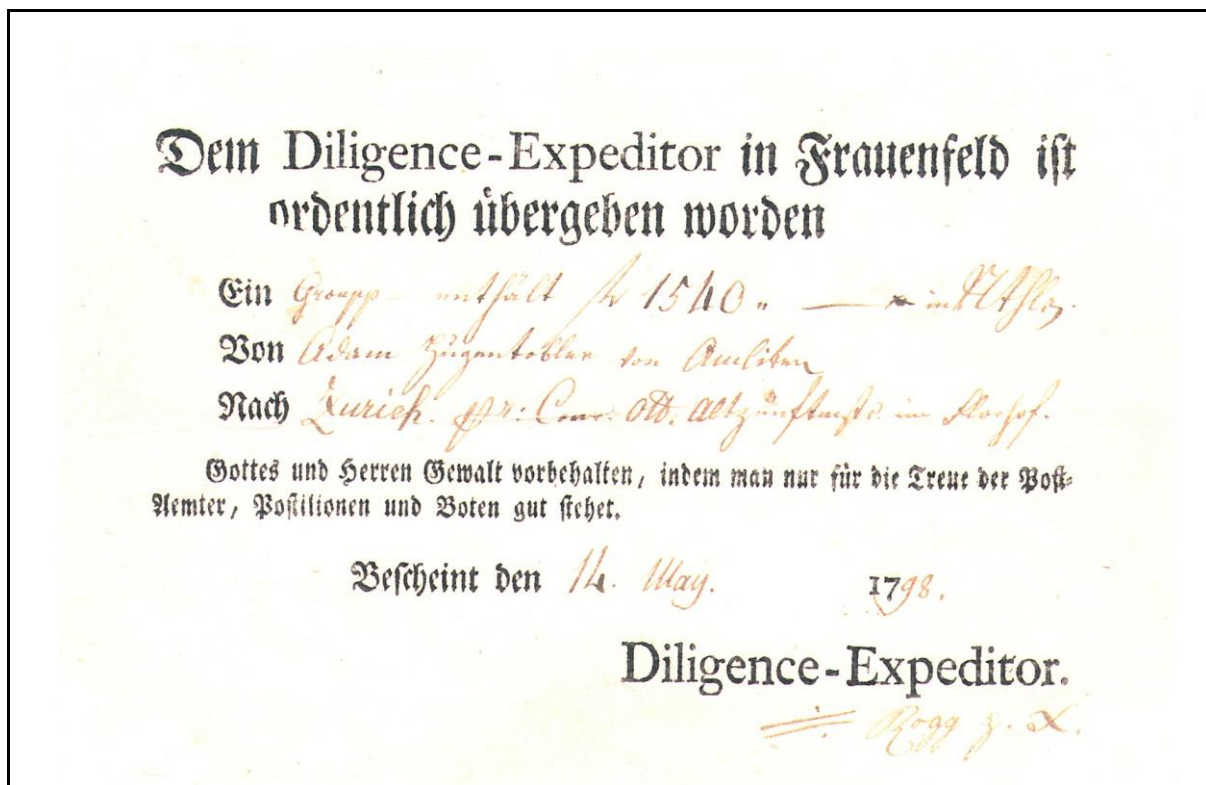 Dem Diligence-Expeditor in Frauenfeld ist
ordentlich übergeben worden
Ein Groupp enthält f 1540.. — in
Von Adam Hugentobler von Amliken
Nach Zurich. pr: Conr: Ott. alt Zunftmstr. im Florhof.
Gottes und Herren Gewalt vorbehalten, indem man nur für die Treue der Post-
Aemter, Postilionen und Boten gut stehet.
Bescheint den 14. May. 1798.
Diligence-Expeditor.
Rogg z. L.